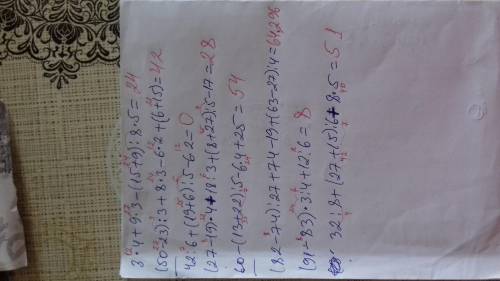 3·4+9·3-(15+9):8·5=24
(50-23):3+8·3-6·2+(6+15)=42
42:6+(19+6):5-6·2=0
(27-19)·4+18:3+(8+27):5-17=28
60-(13+22):5-6·4+25=54
(82-74):27+74-19+(63-27):4=64,296
(91-83)·3:4+12:6=8
32:8+(27+15):6+8·5=51